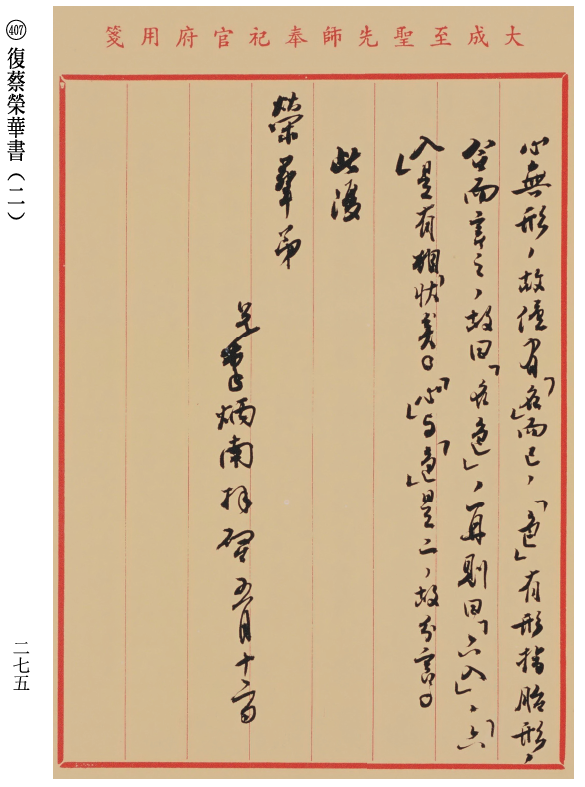 大成至聖先師奉祀官府用箋
心無形，故僅有「名」而已，「色」有形指胎形，
合而言之，故曰「名色」，再則曰「六入」，「六
入」是有相狀矣。「心」與「色」是二，故分言。
此復
榮華弟
兄李炳南拜啓 五月十二日
407 復蔡榮華書（二）
二七五